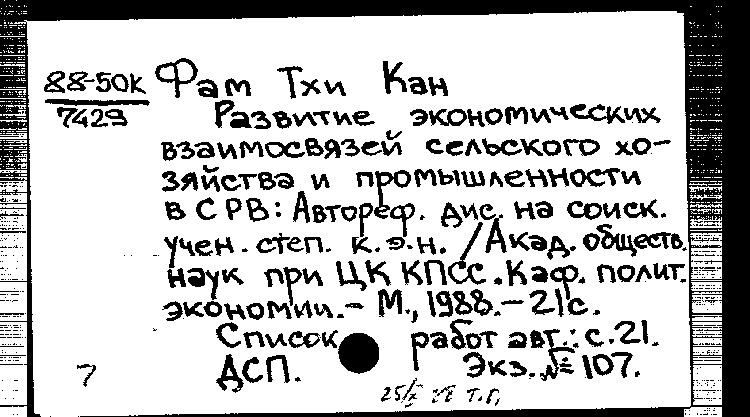 88-50К Фам Тхи Кан
7429 Развитие экономических
взаимосвязей сельского хо-
зяйства и промышленности
в СРВ: Автореф. дис. на соиск.
учен. степ. к.э.н. /Акад. обществ.
наук при ЦК КПСС. Каф. полит.
экономии. – М., 1988. – 21с.
Список работ авт.: с.21.
7 ДСП. Экз. № 107.